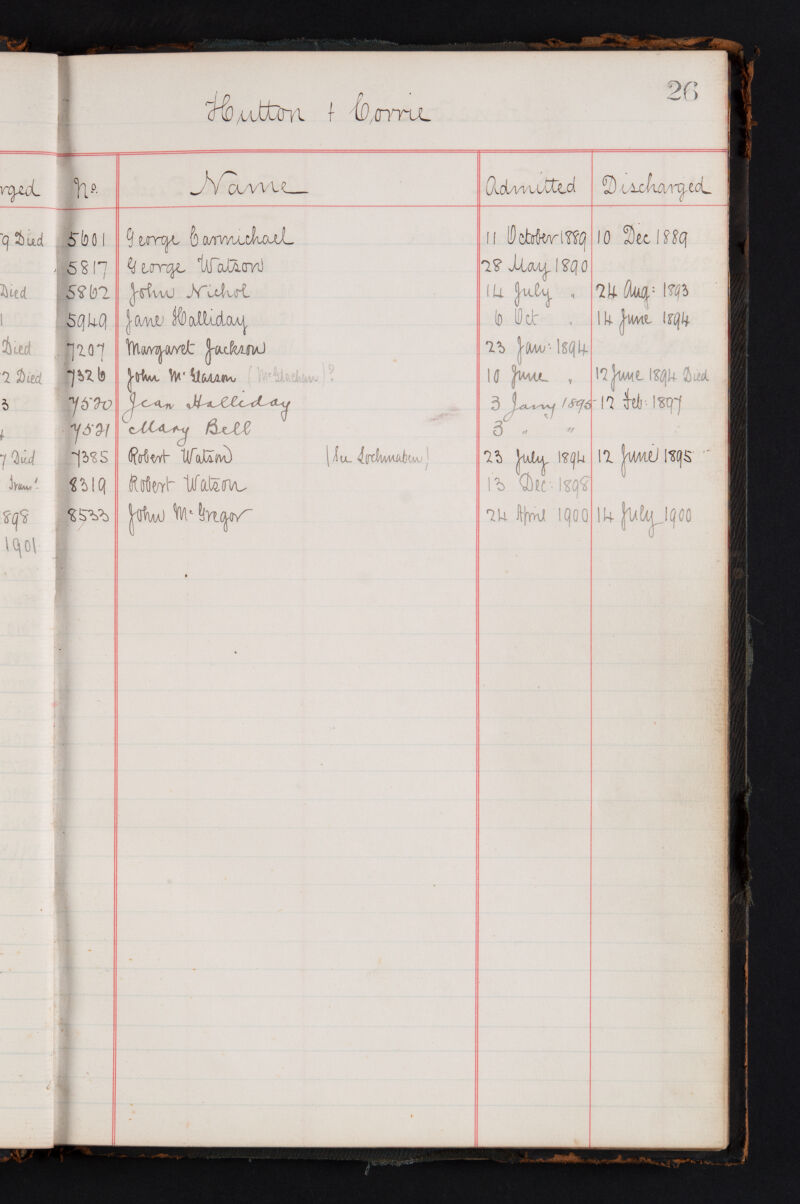 26
Hutton & Corrie
No. Name Admitted Discharged
5601 George Carmichael 11 October 1889 10 Dec 1889
5817 George Watson 28 May 1890
5862 John Nichol 14 July " 24 Aug: 1893
5949 Jane Halliday 6 Oct " 14 June 1894
7207 Margaret Jackson 23 Jan: 1894
7326 John McGlasson (McGlachan)? 10 June " 12 June 1894 Died
7590 Jean Halliday 3 Jany 1895 12 Feb: 1897
7591 Mary Bell 3 " "
7385 Robert Watson (See Lochmaben) 23 July 1894 12 June 1895
8319 Robert Watson 13 Dec: 1898
8533 John McGregor 24 April 1900 14 July 1900
rged
9 Died
Died
1
Died
2 Died
3
7 Died
898
1901